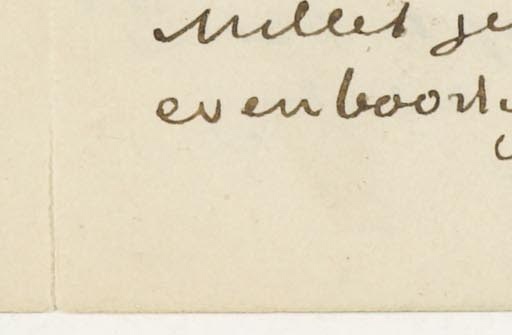 Millet ge
evenboorti